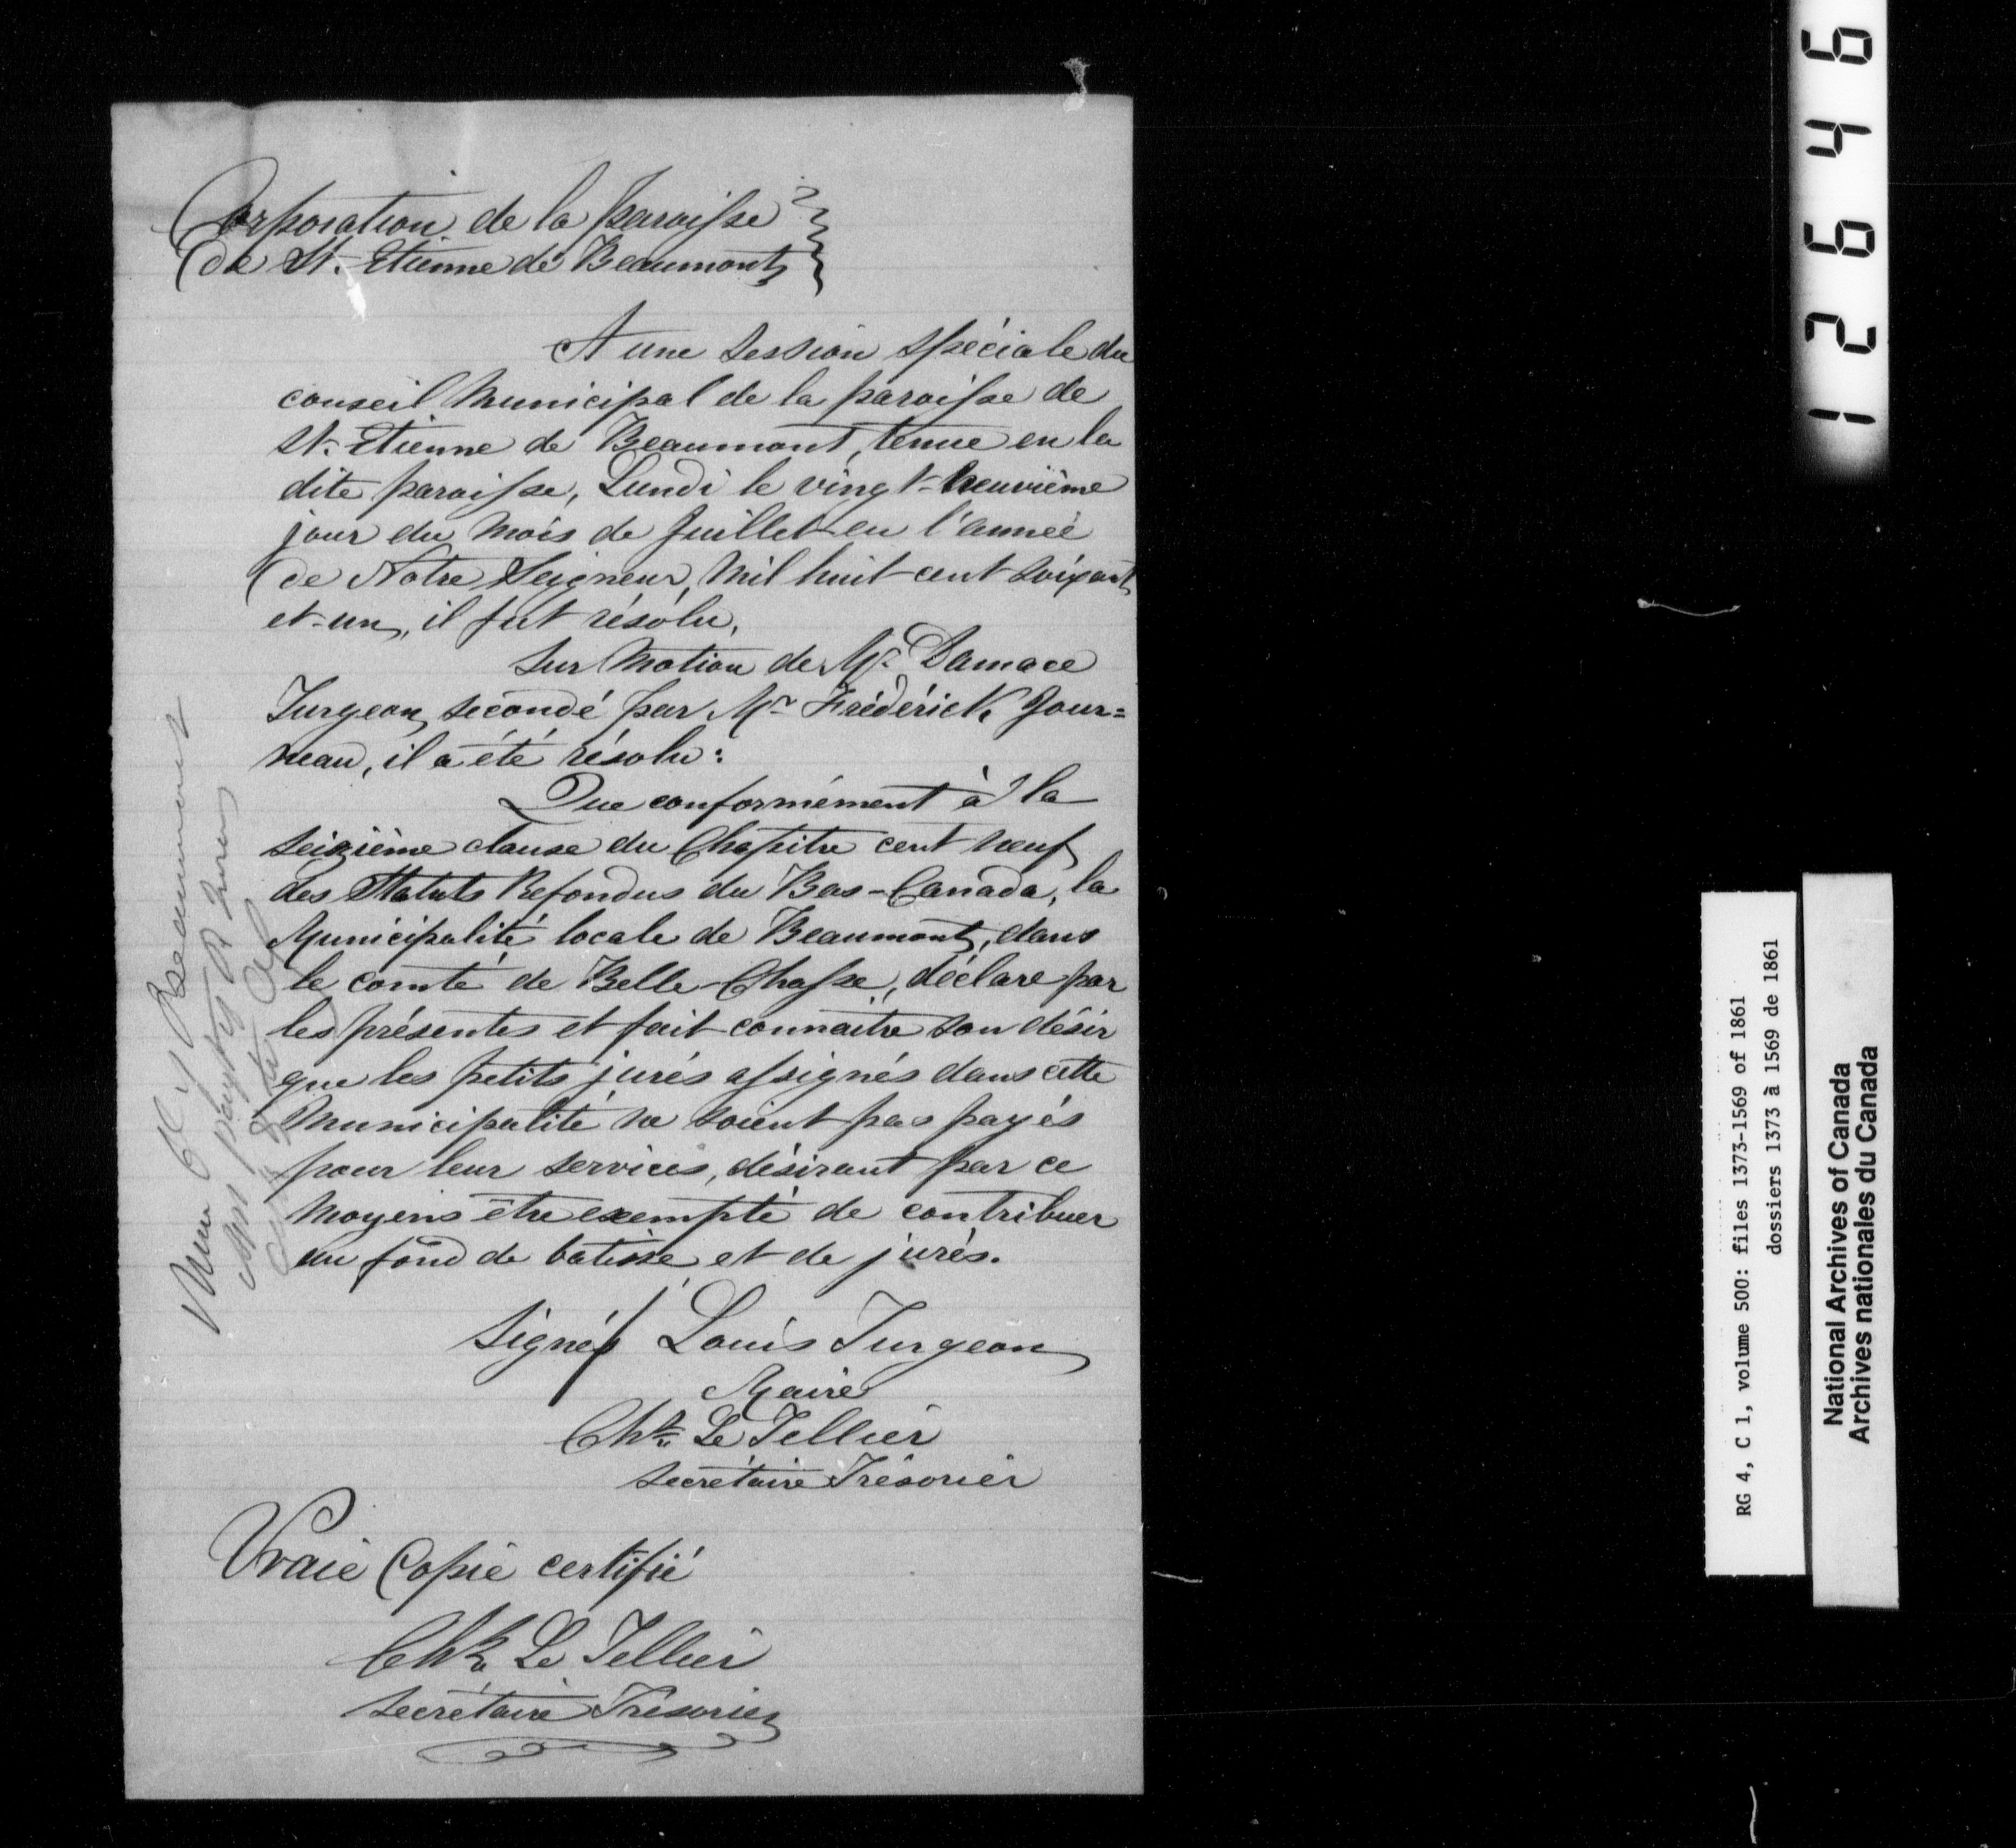 Corporation de la paroisse
de St. Etienne de Beaumont
A une session spéciale du
conseil Municipal de la paroisse de
St. Etienne de Beaumont, tenue en la
dite paroisse, Lundi le vingt-neuvième
jour du mois de Juillet en l'année
de Notre Seigneur, Mil huit cent soixant
et-un, il fut résolu,
Sur Motion de Mr Damace
Turgeon, secondé par Mr Frédérick Gour=
neau, il a été résolu:
Que conformément à la
seizième clause du Chapitre cent neuf
des Statuts Refondus du Bas-Canada, la
Municipalité locale de Beaumont, dans
le comté de Belle-Chasse, déclare par
les présentes et fait connaître son désir
que les petits jurés assignés dans cette
Municipalité ne soient pas payés
pour leur services, désirant par ce
moyens être exempté de contribuer
au fond de batisse et de jurés.
Signé/ Louis Turgeon
Maire
Chs. Le Tellier
Secrétaire Trésorier
Vraie Copie certifié
Chs. Le Tellier
Secrétaire Trésorier
Beaumont
12646
RG 4, C 1, volume 500: files 1373-1569 of 1861
dossiers 1373 à 1569 de 1861
National Archives of Canada
Archives nationales du Canada